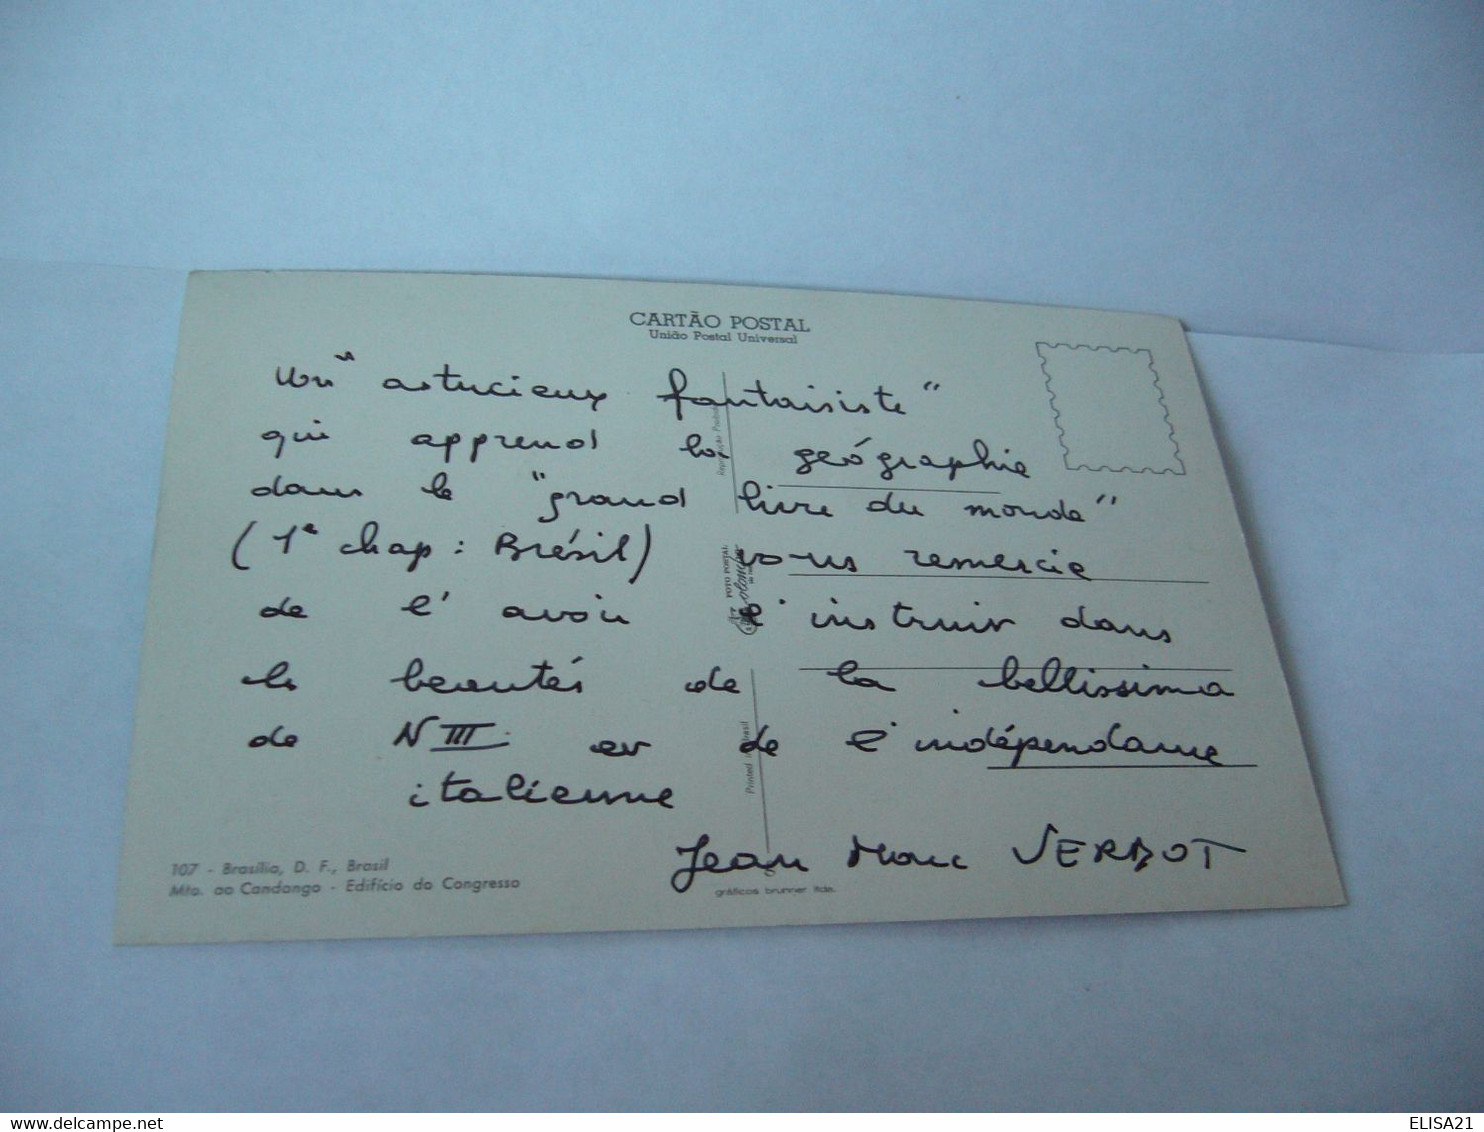 CARTÃO POSTAL
União Postal Universal
Un "astucieux fantaisiste"
qui apprend la géographie
dans le "grand livre du monde"
(1e chap : Brésil) vous remercie
de l'avoir l'instruir dans
les beautés de la bellissima
de N III et de l'indépendance
italienne
Jean Marc VERBOT
FOTO POSTAL
Printed in Brasil
107 - Brasília, D. F., Brasil
Mto. ao Candango - Edifício do Congresso
gráficos brunner ltda.
delcampe.net
ELISA21